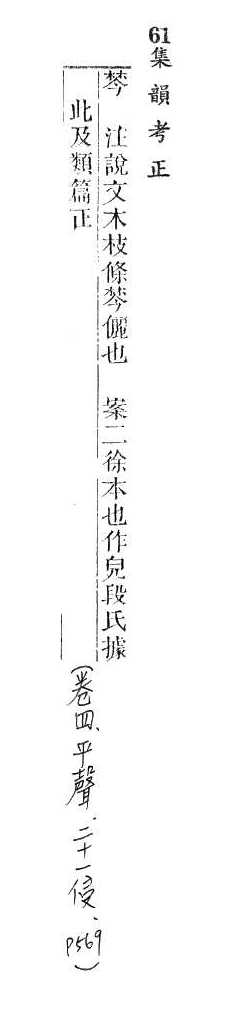 61集韻考正
棽　注說文木枝條棽儷也　案二徐本也作皃段氏據
此及類篇正
(卷四、平聲、二十一侵、P569)